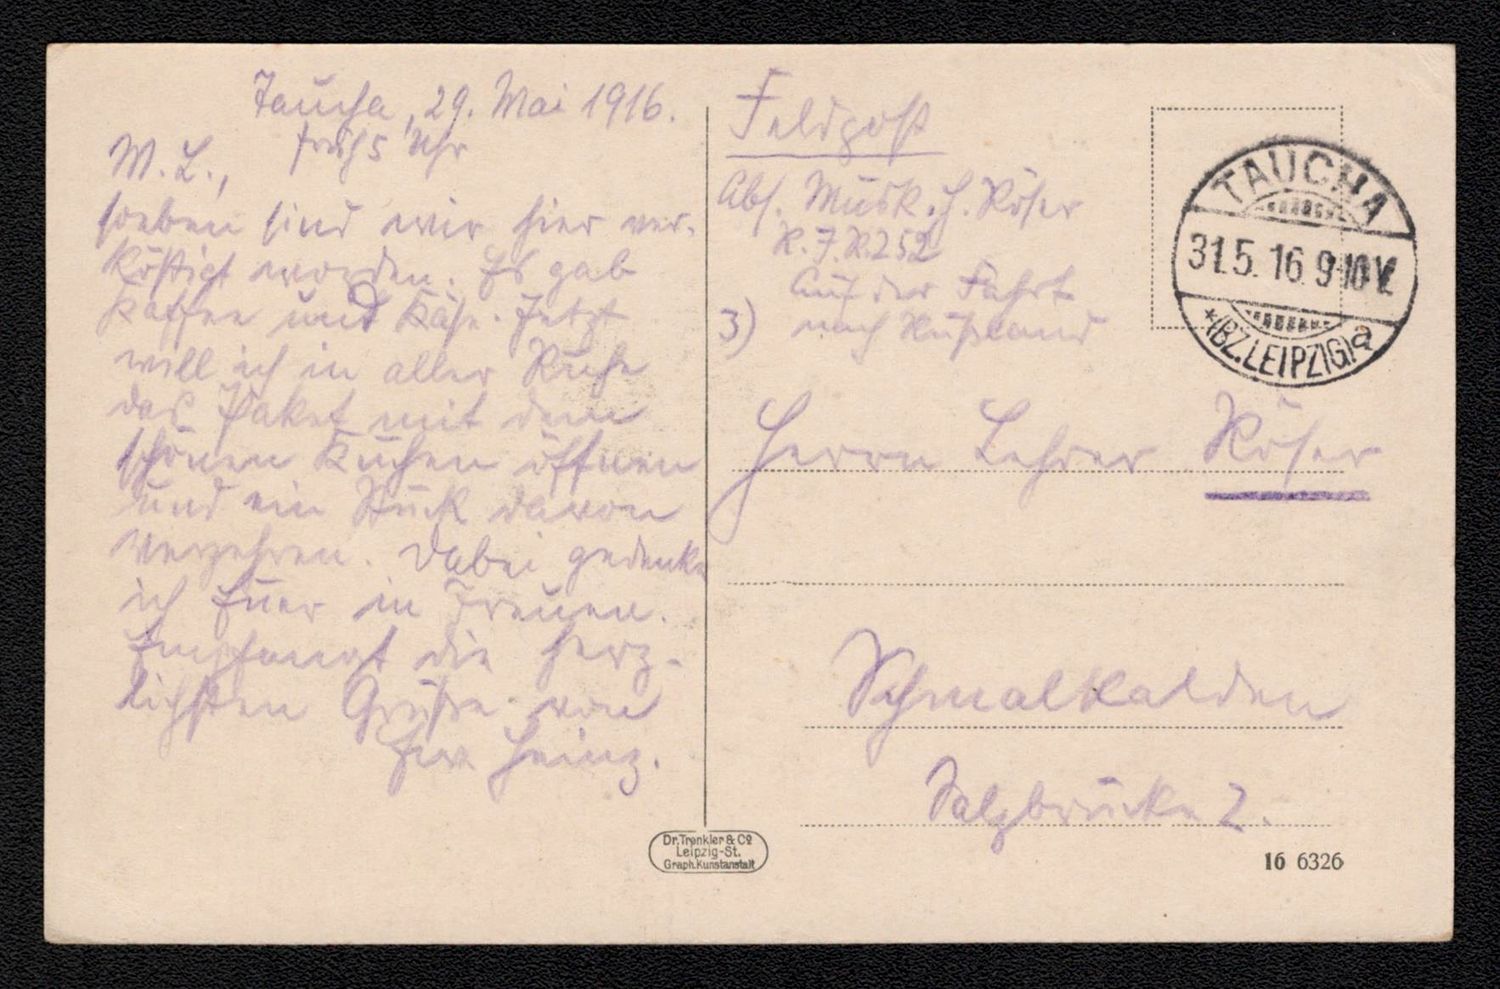 Taucha, 29. Mai 1916.
früh 5 Uhr
M. L.,
soeben sind wir hier ver-
köstigt worden. Es gab
Kaffee und Käse. Jetzt
will ich in aller Ruhe
das Paket mit dem
schönen Kuchen öffnen
und ein Stück davon
verzehren. Dabei gedenke
ich Euer in Treuen.
Empfangt die herz-
lichsten Grüße von
Eur. Heinz.
Feldpost
Abs. Musk. H. Röser
R. I. R. 252
Auf der Fahrt
3) nach Rußland
Herrn Lehrer Röser
Schmalkalden
Salzbrücke 2.
TAUCHA
31.5.16. 9-10 V.
*(BZ. LEIPZIG) a
Dr. Trenkler & Co
Leipzig-St.
Graph. Kunstanstalt
16 6326